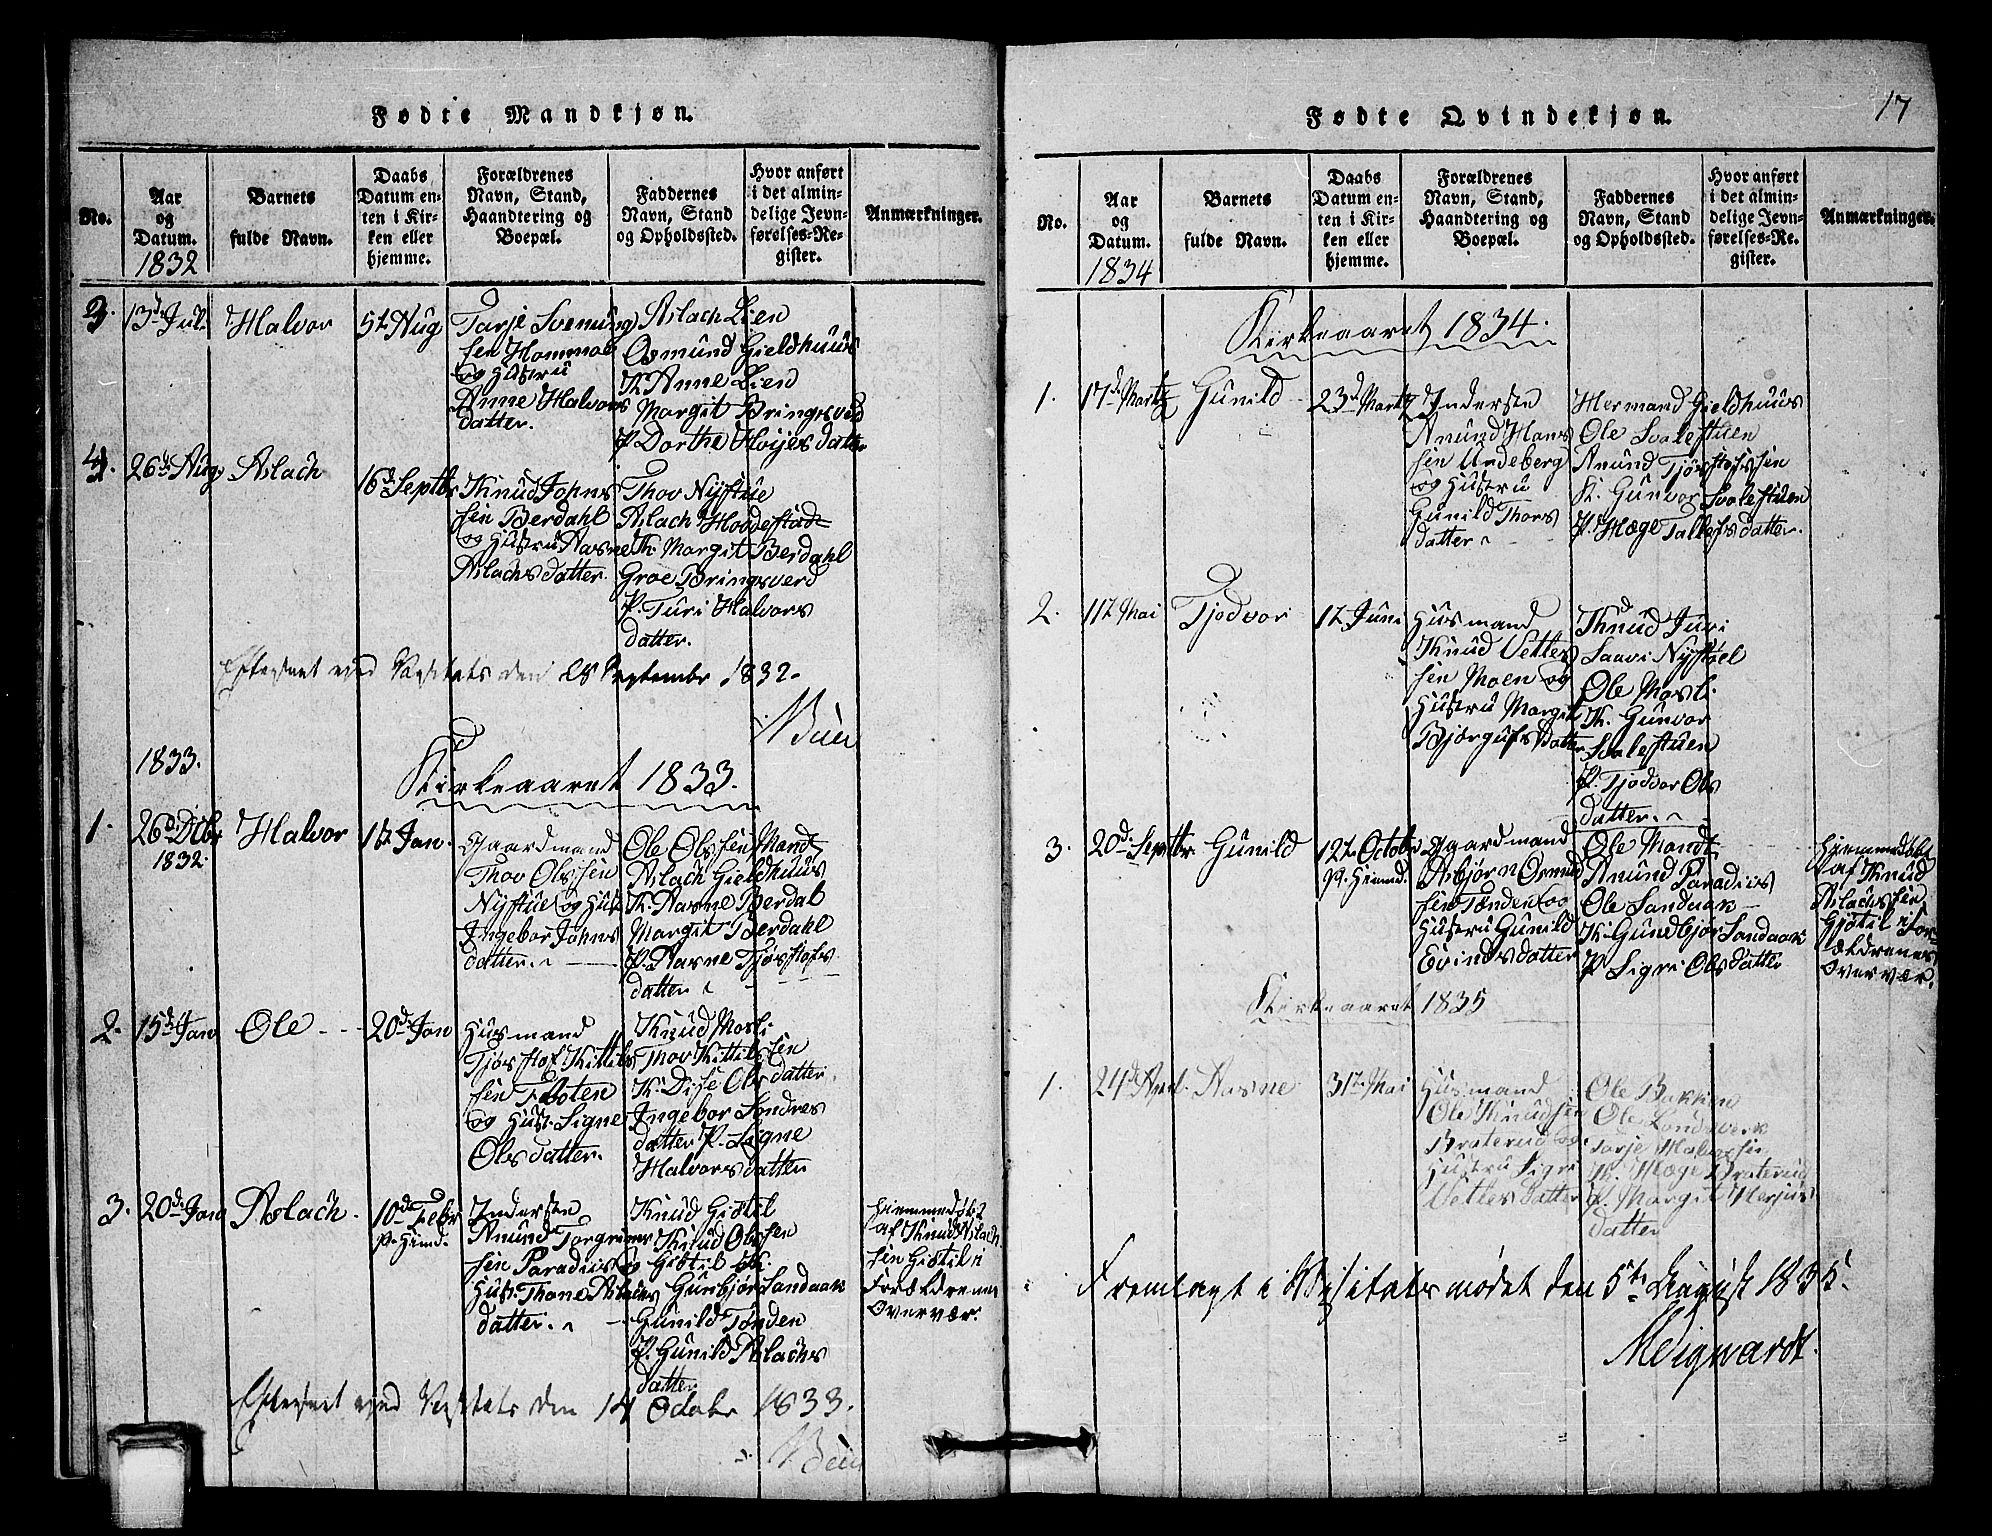 Fødte Mandkjøn.
No.
Aar
og
Datum.
1832
Barnets
fulde Navn.
Daabs
Datum en-
ten i Kir-
ken eller
hjemme.
Forældrenes
Navn, Stand,
Haandtering og
Boepæl.
Faddernes
Navn, Stand
og Opholdssted.
Hvor anført
i det almin-
delige Jevn-
førelses-Re-
gister.
Anmærkninger.
3.
13d Jul.
Halvor
5t Aug
Tarje Svenung
sen Hommos
og Hustru
Anne Halvors
datter.
Aslach Lien
Osmund Gieldhuus
K. Anne Lien
Margit Bringsverd
P. Dorthe Hoijesdatter
4.
26de Aug
Aslach
16d Septbr
Knud Johns
sen Berdahl
og Hustru Aasne
Aslachsdatter.
Thov Nystue
Aslach Hovdestad
K. Margit Berdahl
Groe Bringsverd
P. Turi Halvors
datter.
Efterseet ved Visitats den 28 September 1832.
Buu
1833.
Kirkeaaret 1833.
1.
26d Dcbr
1832.
Halvor
1t Jan.
Gaardmand
Thov Olssen
Nystue og Hust
Ingebor Johns
datter.
Ole Olssen Mandt
Aslach Gieldhuus
K. Aasne Berdal
Margit Berdahl
P. Aasne Tjøstofs
datter
2.
15d Jan
Ole
20d Jan
Husmand
Tjøstof Kittils
sen Floten
og Hust. Signe
Olsdatter.
Knud Mosli
Thov Kittilssen
K. Dise Olsdatter.
Ingebor Sondres
datter P. Signe
Halvorsdatter
3.
20d Jan
Aslach.
10d Febr
p. Hiemd.
Indersten
Anund Torgrims
sen Paradiis og
Hust. Thone Aslachs
datter.
Knud Giøtil
Knud Olssen
Giøtil K.
Gunbjør Sandaak
Gunild Tønden
P. Gunild Aslachs
datter
Hiemmedøbt
af Knud Aslach
sen Giøtil i
Forældrenes
Overvær.
Efterseet ved Visitats den 14 Octobr 1833.
Buu
Fødte Qvindekjøn.
17
No.
Aar
og
Datum.
1834
Barnets
fulde Navn.
Daabs
Datum en-
ten i Kir-
ken eller
hjemme.
Forældrenes
Navn, Stand,
Haandtering og
Boepæl.
Faddernes
Navn, Stand
og Opholdssted.
Hvor anført
i det almin-
delige Jevn-
førelses-Re-
gister.
Anmærkninger.
Kirkeaaret 1834.
1.
17d Martz
Gunild
23d Martz
Indersten
Anund Hans
sen Undeberg
og Hustru
Gunild Thors
datter
Hermand Gieldhuus
Ole Svalestuen
Anund Tjøstofssen
K. Gunvor Svalestuen
P. Hæge Tallefsdatter.
2.
11t Mai
Tjodvor
1t Juni
Husmand
Knud Vetles
sen Moen og
Hustru Margit
Bjørgufsdatter
Knud Juri
Saavi Nystøel
Ole Mosli.
K. Gunvor
Svalestuen
P. Tjodvor Ols
datter.
3.
20d Septbr
Gunild
12t Octobr
p. Hiemd.
Gaardmand
Asbjørn Osmund
sen Tønden og
Hustru Gunild
Evindsdatter
Ole Mandt
Anund Paradiis
Ole Sandaak
K. Gundbjør Sandaak
P. Sigri Olsdatter
Hiemmedøbt
af Knud
Aslachssen
Gjøtil i For
ældrenes
Overvær.
Kirkeaaret 1835
1.
24d April
Aasne
31t Mai
Husmand
Ole Knudsen
Braterud og
Hustru Sigri
Vetlesdatter
Ole Bakken
Ole Landsverk
Tarje Halvorsen
K. Hæge Braterud
P. Margit Herjus
datter
Fremlagt i Visitatsmødet den 5te August 1835.
Meigwardt.